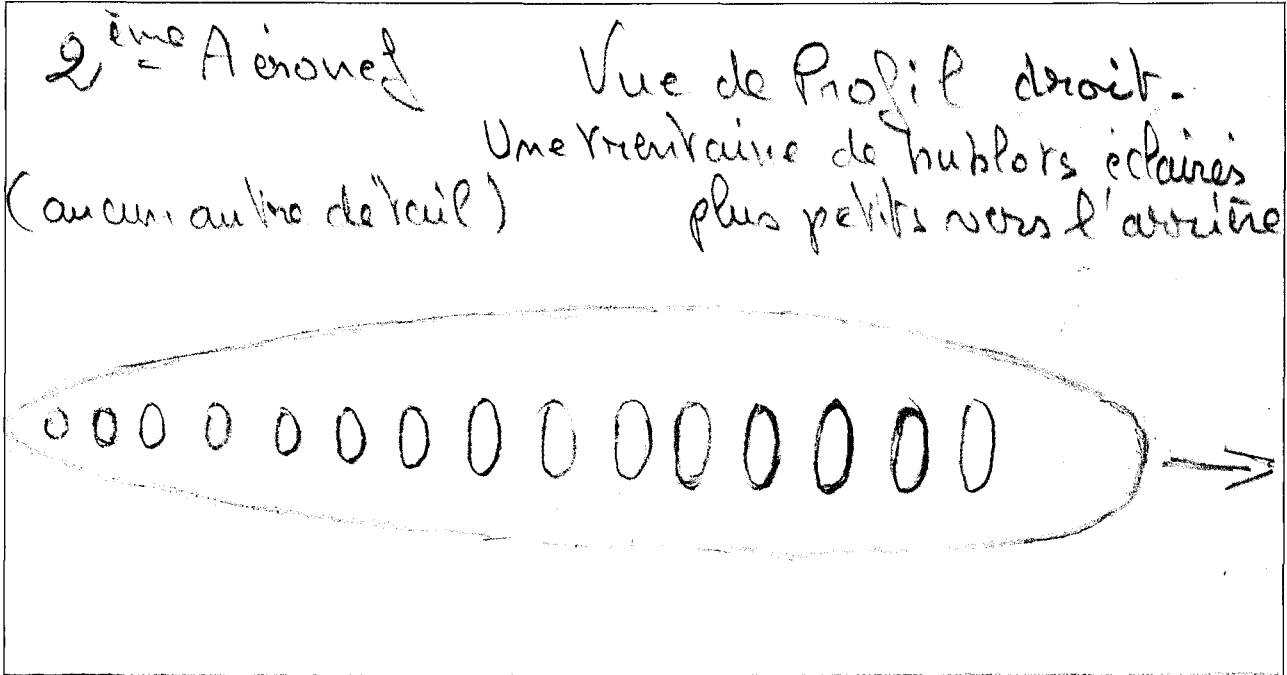 2ème Aéronef Vue de Profil droit.
Une trentaine de hublots éclairés
(aucun autre détail) plus petits vers l'arrière